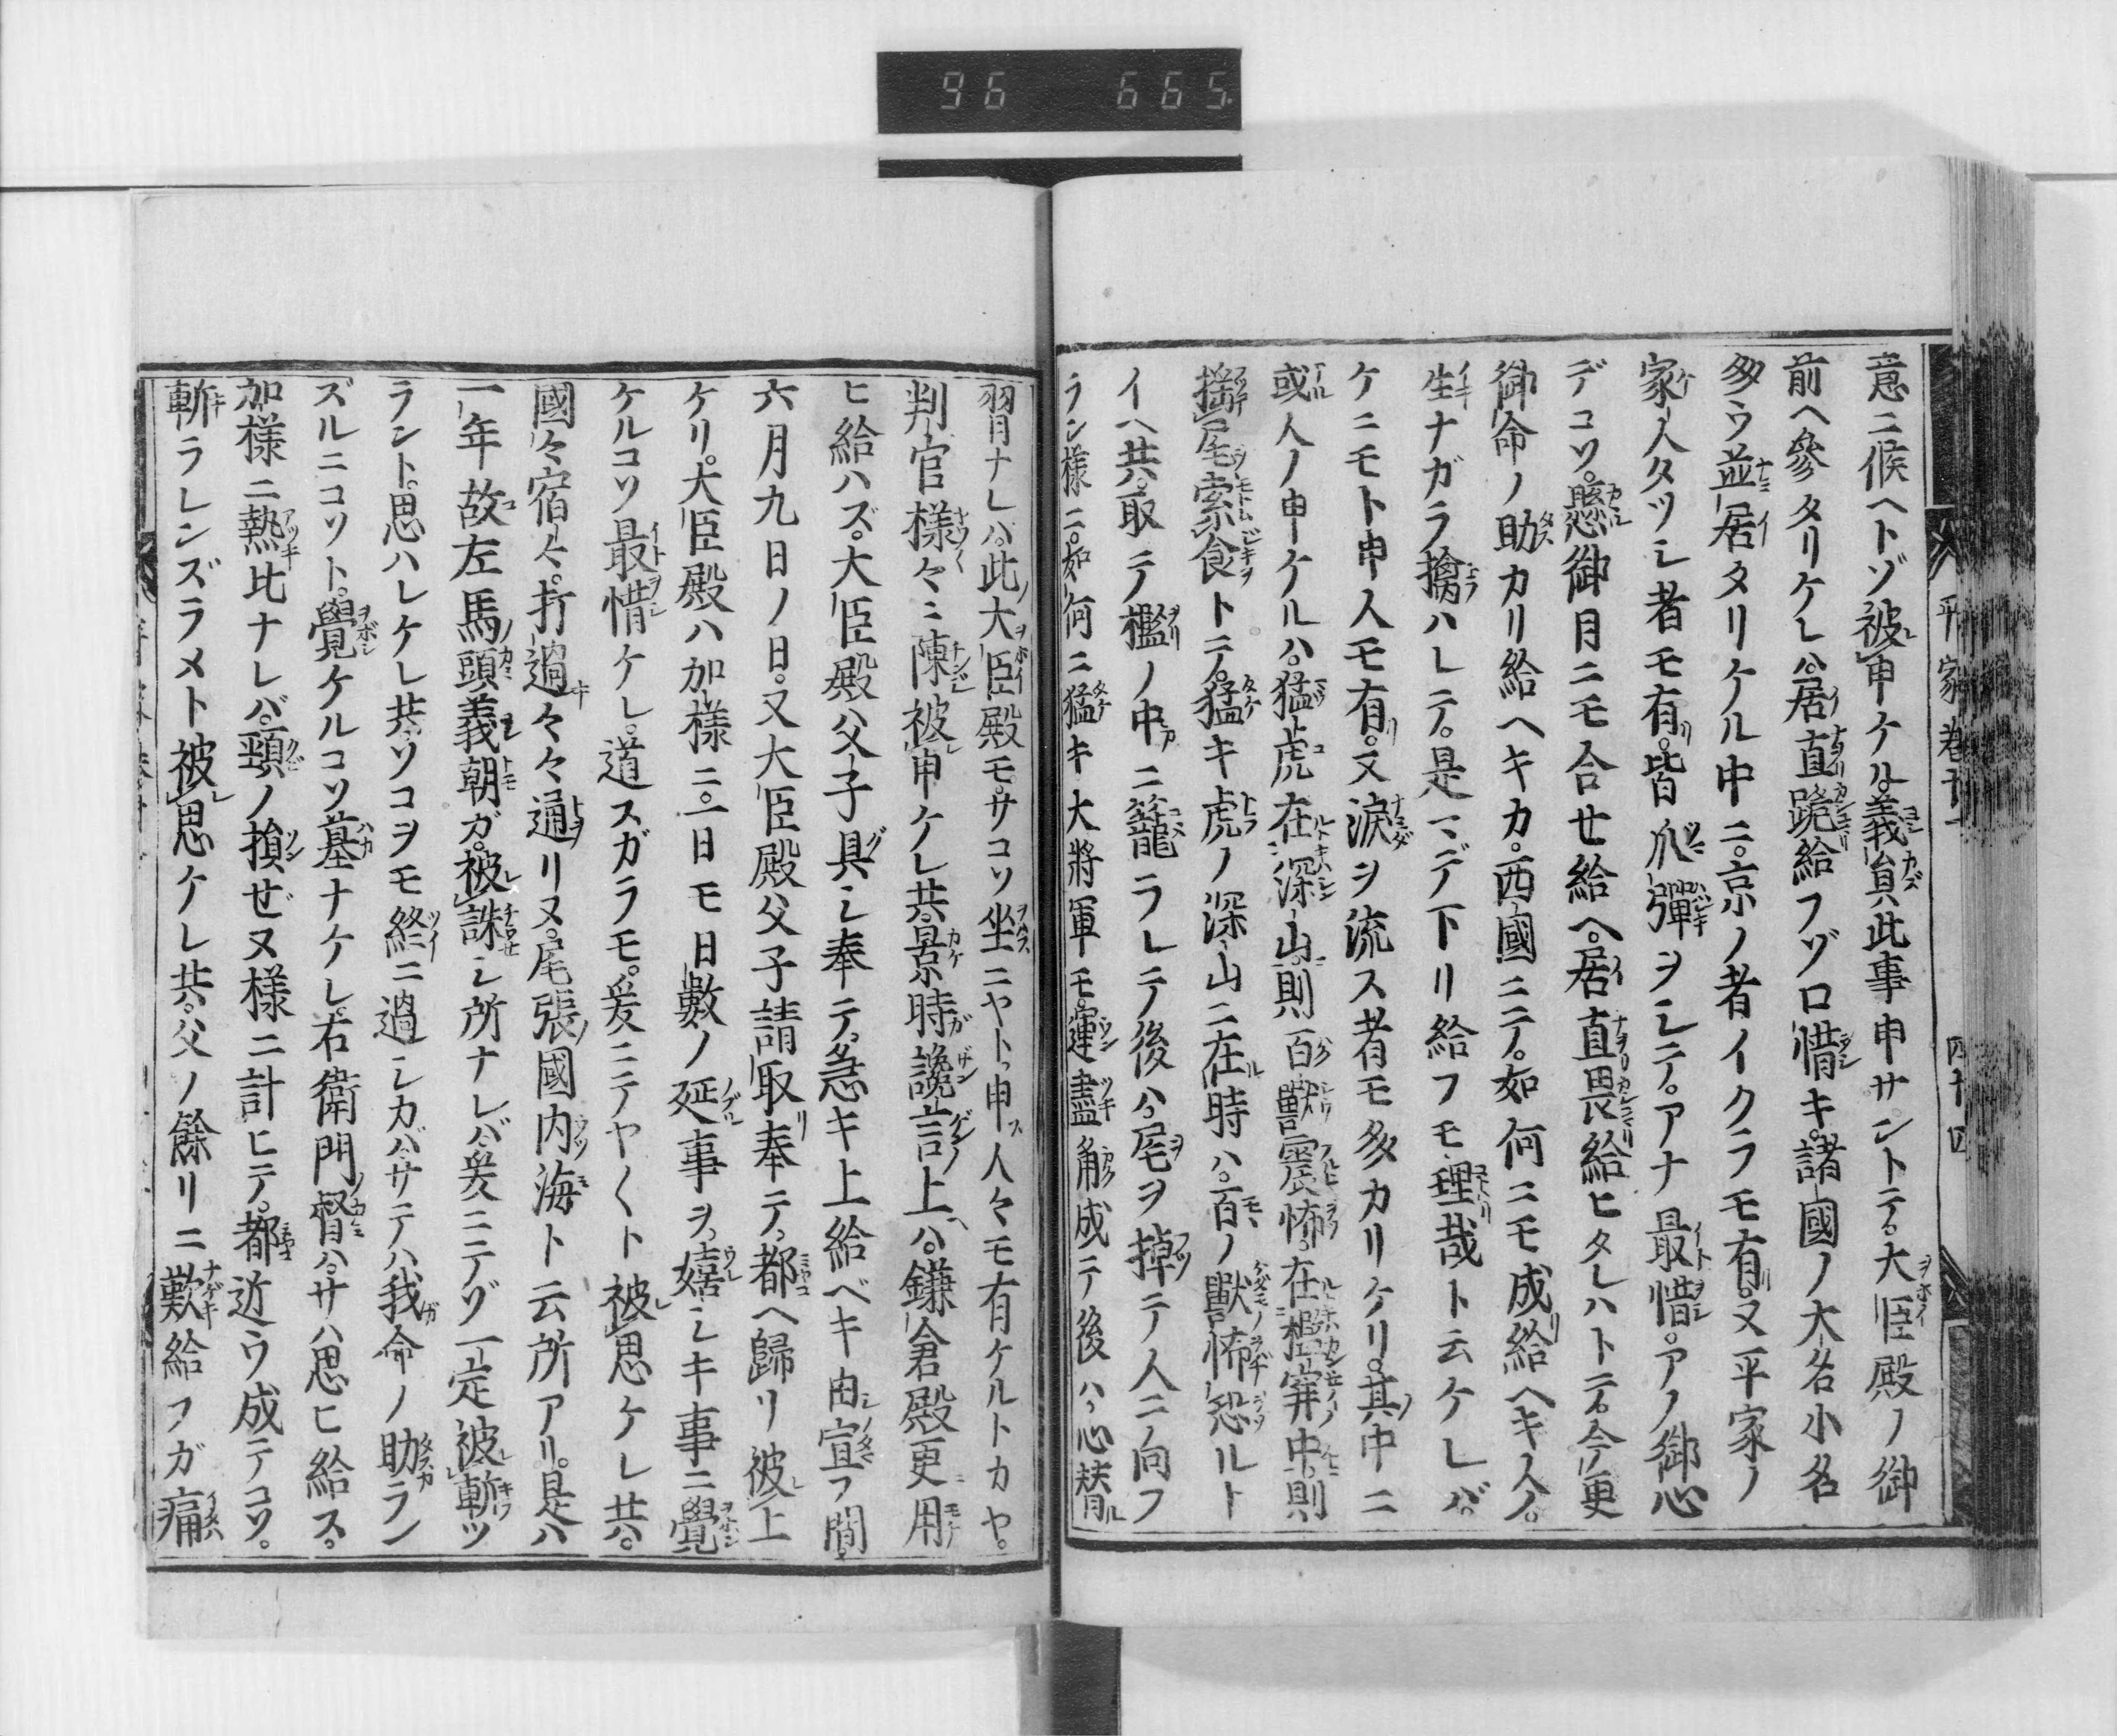 96 665
平家巻十一 四十四
意ニ候ヘトゾ被申ケル義員此事申サントテ。大臣殿ノ御
前ヘ參タリケレハ。居直跪給フゾ口惜キ。諸國ノ大名小名
多ウ並居タリケル中ニ。京ノ者イクラモ有。又平家ノ
家人タツシ者モ有。皆爪彈ヲシテ。アナ最惜。アノ御心
デコソ。懸御目ニモ合セ給ヘ。居直畏給ヒタレハトテ。今更
御命ノ助カリ給ヘキカ。西國ニテ。如何ニモ成給ヘキ人ノ。
生ナガラ擒ハレテ。是マデ下リ給フモ理哉ト云ケレバ。
ケニモト申人モ有。又淚ヲ流ス者モ多カリケリ。其中ニ
或人ノ申ケルハ。猛虎在深山則百獸震怖。在檻穽中則
搖尾索食トテ。猛キ虎ノ深山ニ在時ハ。百ノ獸怖恐ルト
イヘ共。取テ檻ノ中ニ籠ラレテ後ハ。尾ヲ掉テ人ニ向フ
ラン樣ニ。如何ニ猛キ大將軍モ。運盡角成テ後ハ。心替ル
習ナレハ。此大臣殿モ。サコソ坐ニヤト。申人々モ有ケルトカヤ。
判官樣々ニ陳被申ケレ共。景時讒言上ハ。鎌倉殿更用
ヒ給ハズ。大臣殿父子具シ奉テ。急キ上給ベキ由宣フ間。
六月九日ノ日。又大臣殿父子請取奉テ。都ヘ歸リ被上
ケリ。大臣殿ハ加樣ニ。一日モ日數ノ延事ヲ。嬉シキ事ニ覺
ケルコソ最惜ケレ。道スガラモ。爰ニテヤ〱ト被思ケレ共。
國々宿々。打過々々通リヌ。尾張國內海ト云所アリ。是ハ
一年故左馬頭義朝ガ。被誅シ所ナレバ。爰ニテゾ一定被斬ツ
ラント。思ハレケレ共。ソコヲモ終ニ過シカバ。サテハ我命ノ助ラン
ズルニコソト。覺ケルコソ墓ナケレ。右衛門督ハ。サハ思ヒ給ス。
加樣ニ熱比ナレバ。頸ノ損ゼヌ樣ニ計ヒテ。都近ウ成テコソ。
斬ラレンズラメト被思ケレ共。父ノ餘リニ歎給フガ痛